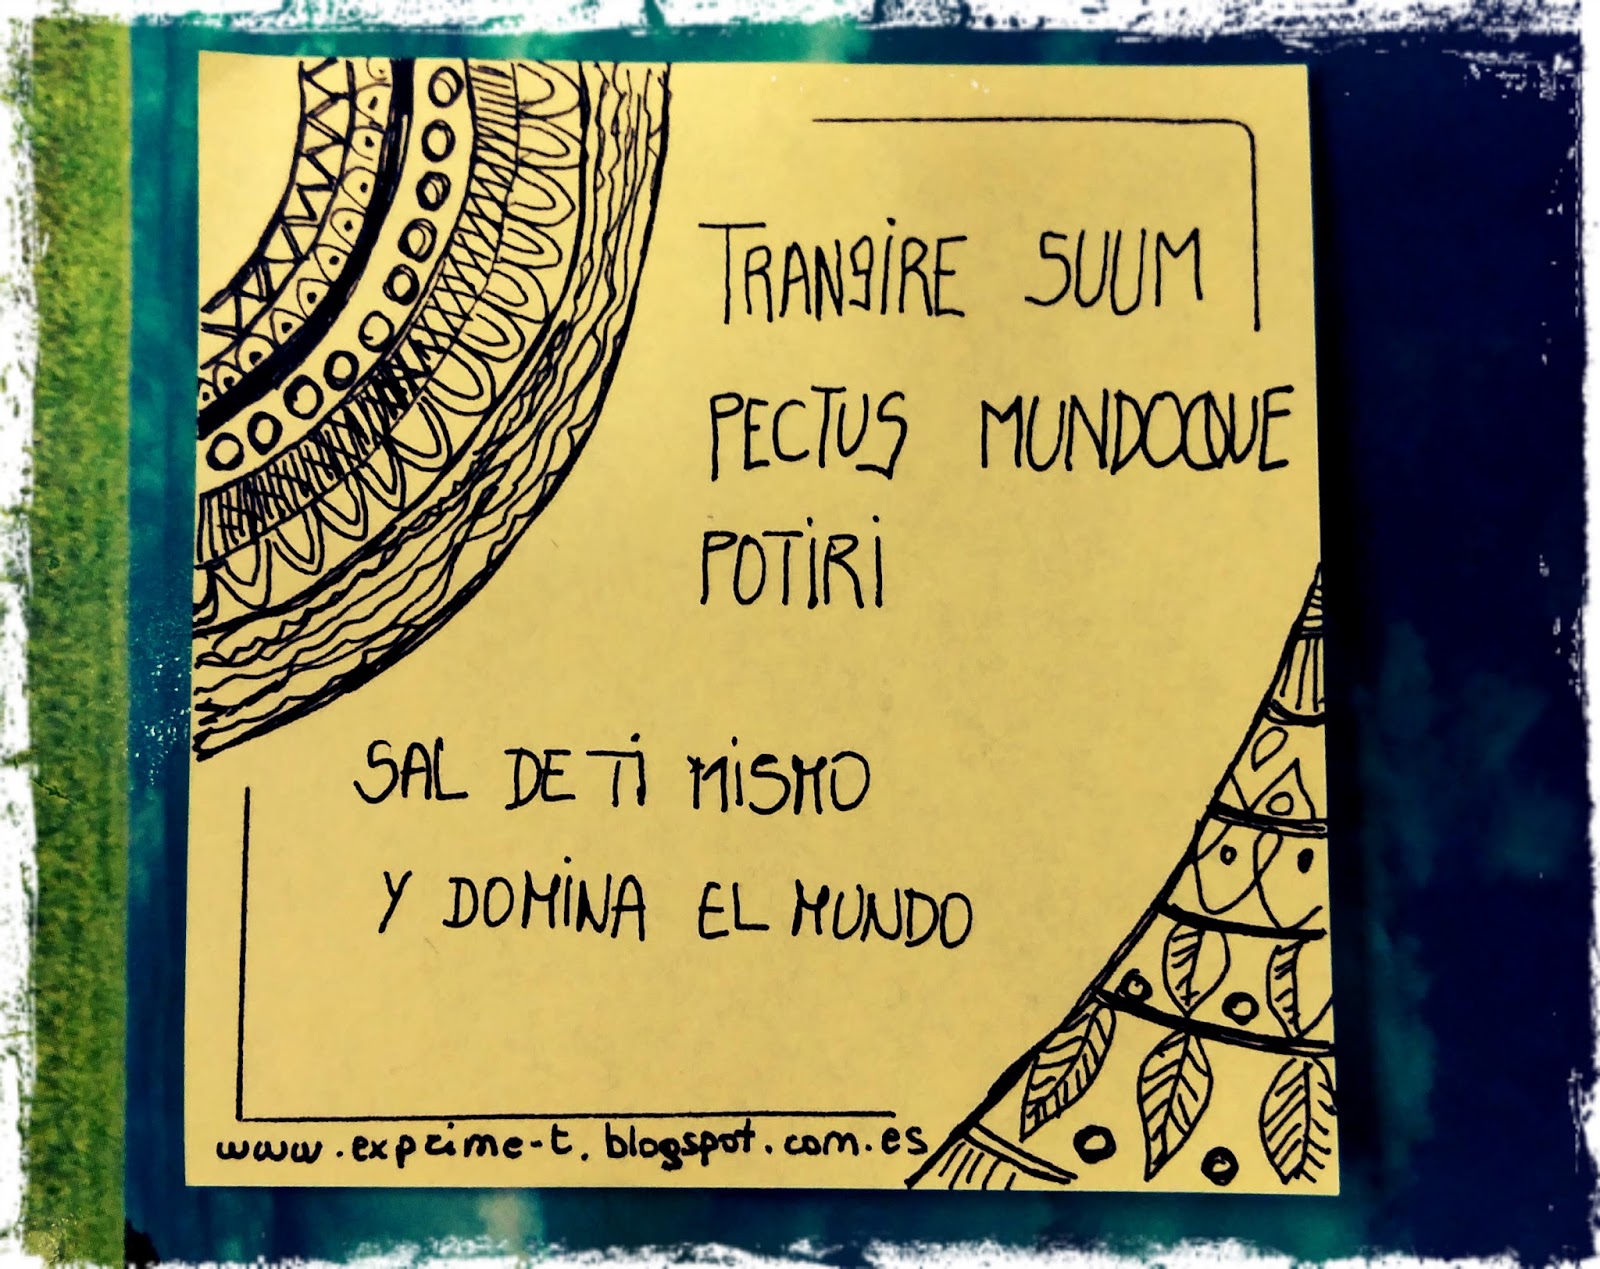 TRANgiRE SUUM
PECTUS MUNDOQUE
POTiRi
SAL DE Ti MiSMO
Y DOMiNA EL MUNDO
www.exprime-t.blogspot.com.es